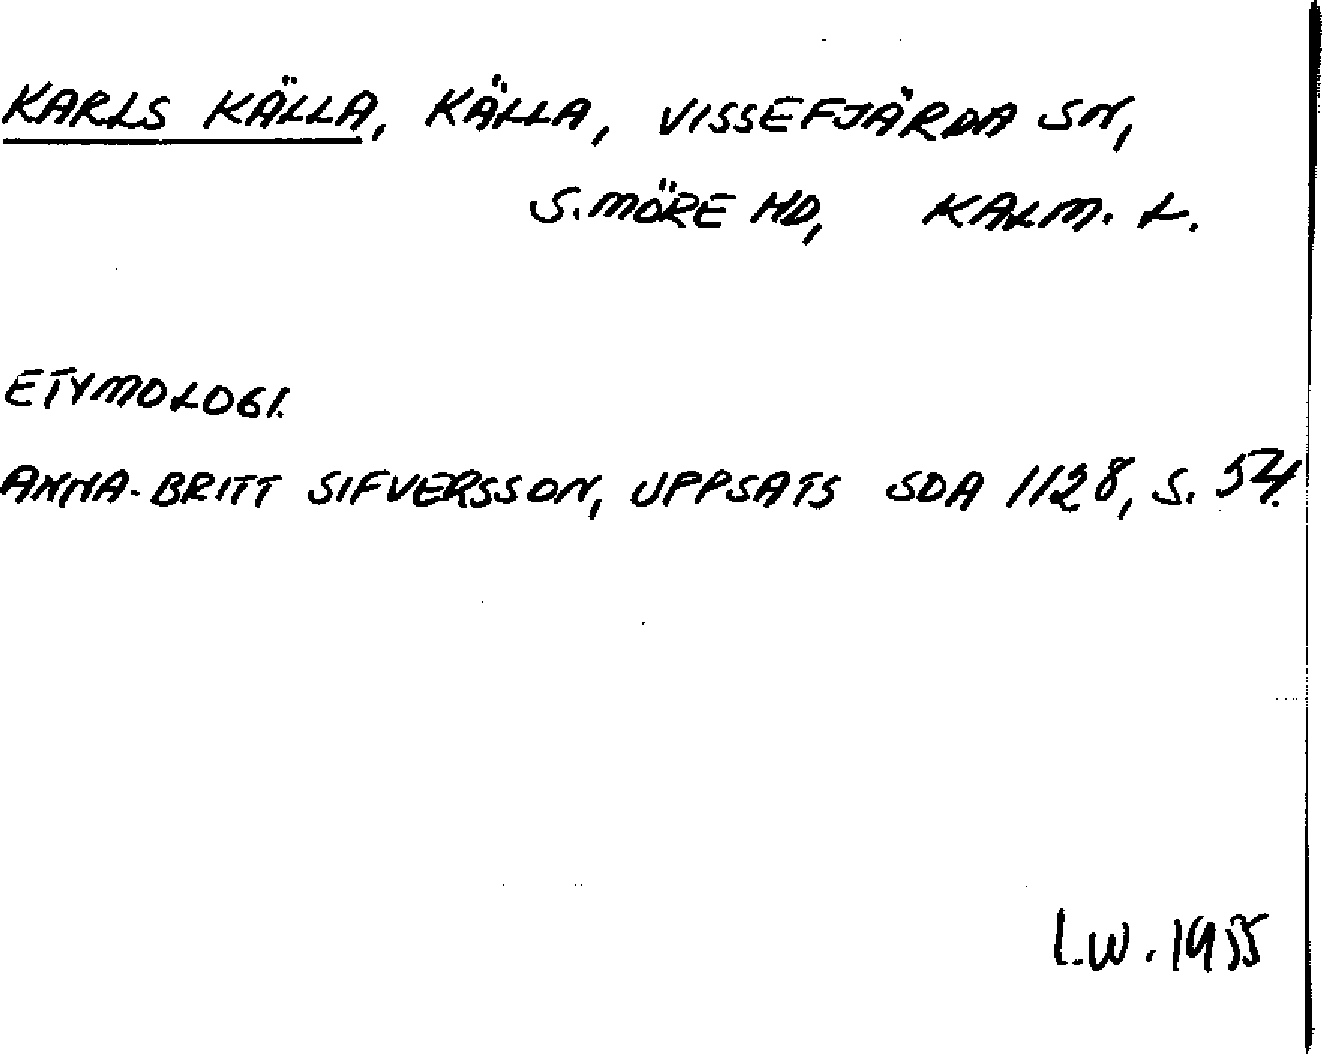 KARLS KÄLLA, KÄLLA, VISSEFJÄRDA SN,
S. MÖRE HD, KALM. L.
ETYMOLOGI.
ANNA-BRITT SIFVERSSON, UPPSATS SDA 1128, S. 54.
I.W. 1955